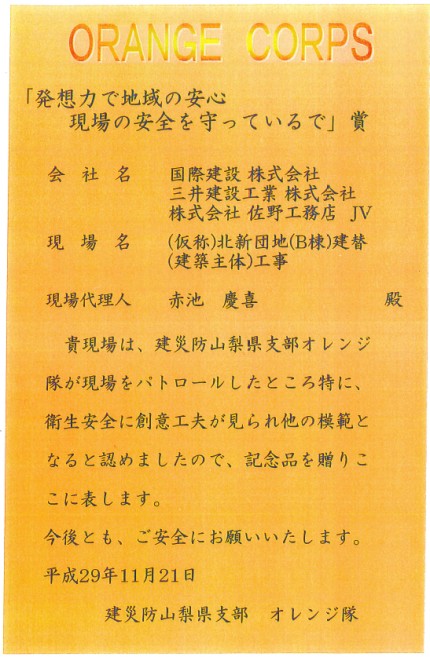 ORANGE CORPS
「発想力で地域の安心
現場の安全を守っているで」賞
会 社 名 国際建設 株式会社
三井建設工業 株式会社
株式会社 佐野工務店 JV
現 場 名 (仮称)北新団地(B棟)建替
(建築主体)工事
現場代理人 赤池 慶喜 殿
貴現場は、建災防山梨県支部オレンジ
隊が現場をパトロールしたところ特に、
衛生安全に創意工夫が見られ他の模範と
なると認めましたので、記念品を贈りこ
こに表します。
今後とも、ご安全にお願いいたします。
平成29年11月21日
建災防山梨県支部 オレンジ隊